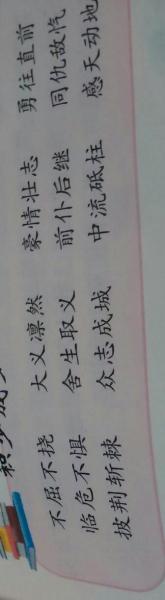 不屈不挠 大义凛然 豪情壮志 勇往直前
临危不惧 舍生取义 前仆后继 同仇敌忾
披荆斩棘 众志成城 中流砥柱 感天动地